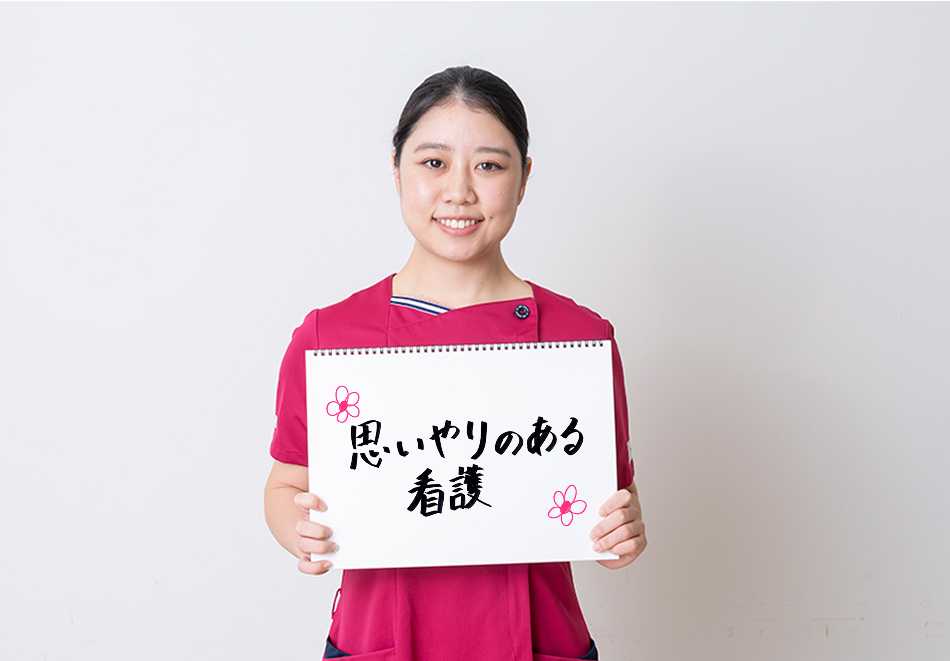 思いやりのある
看護